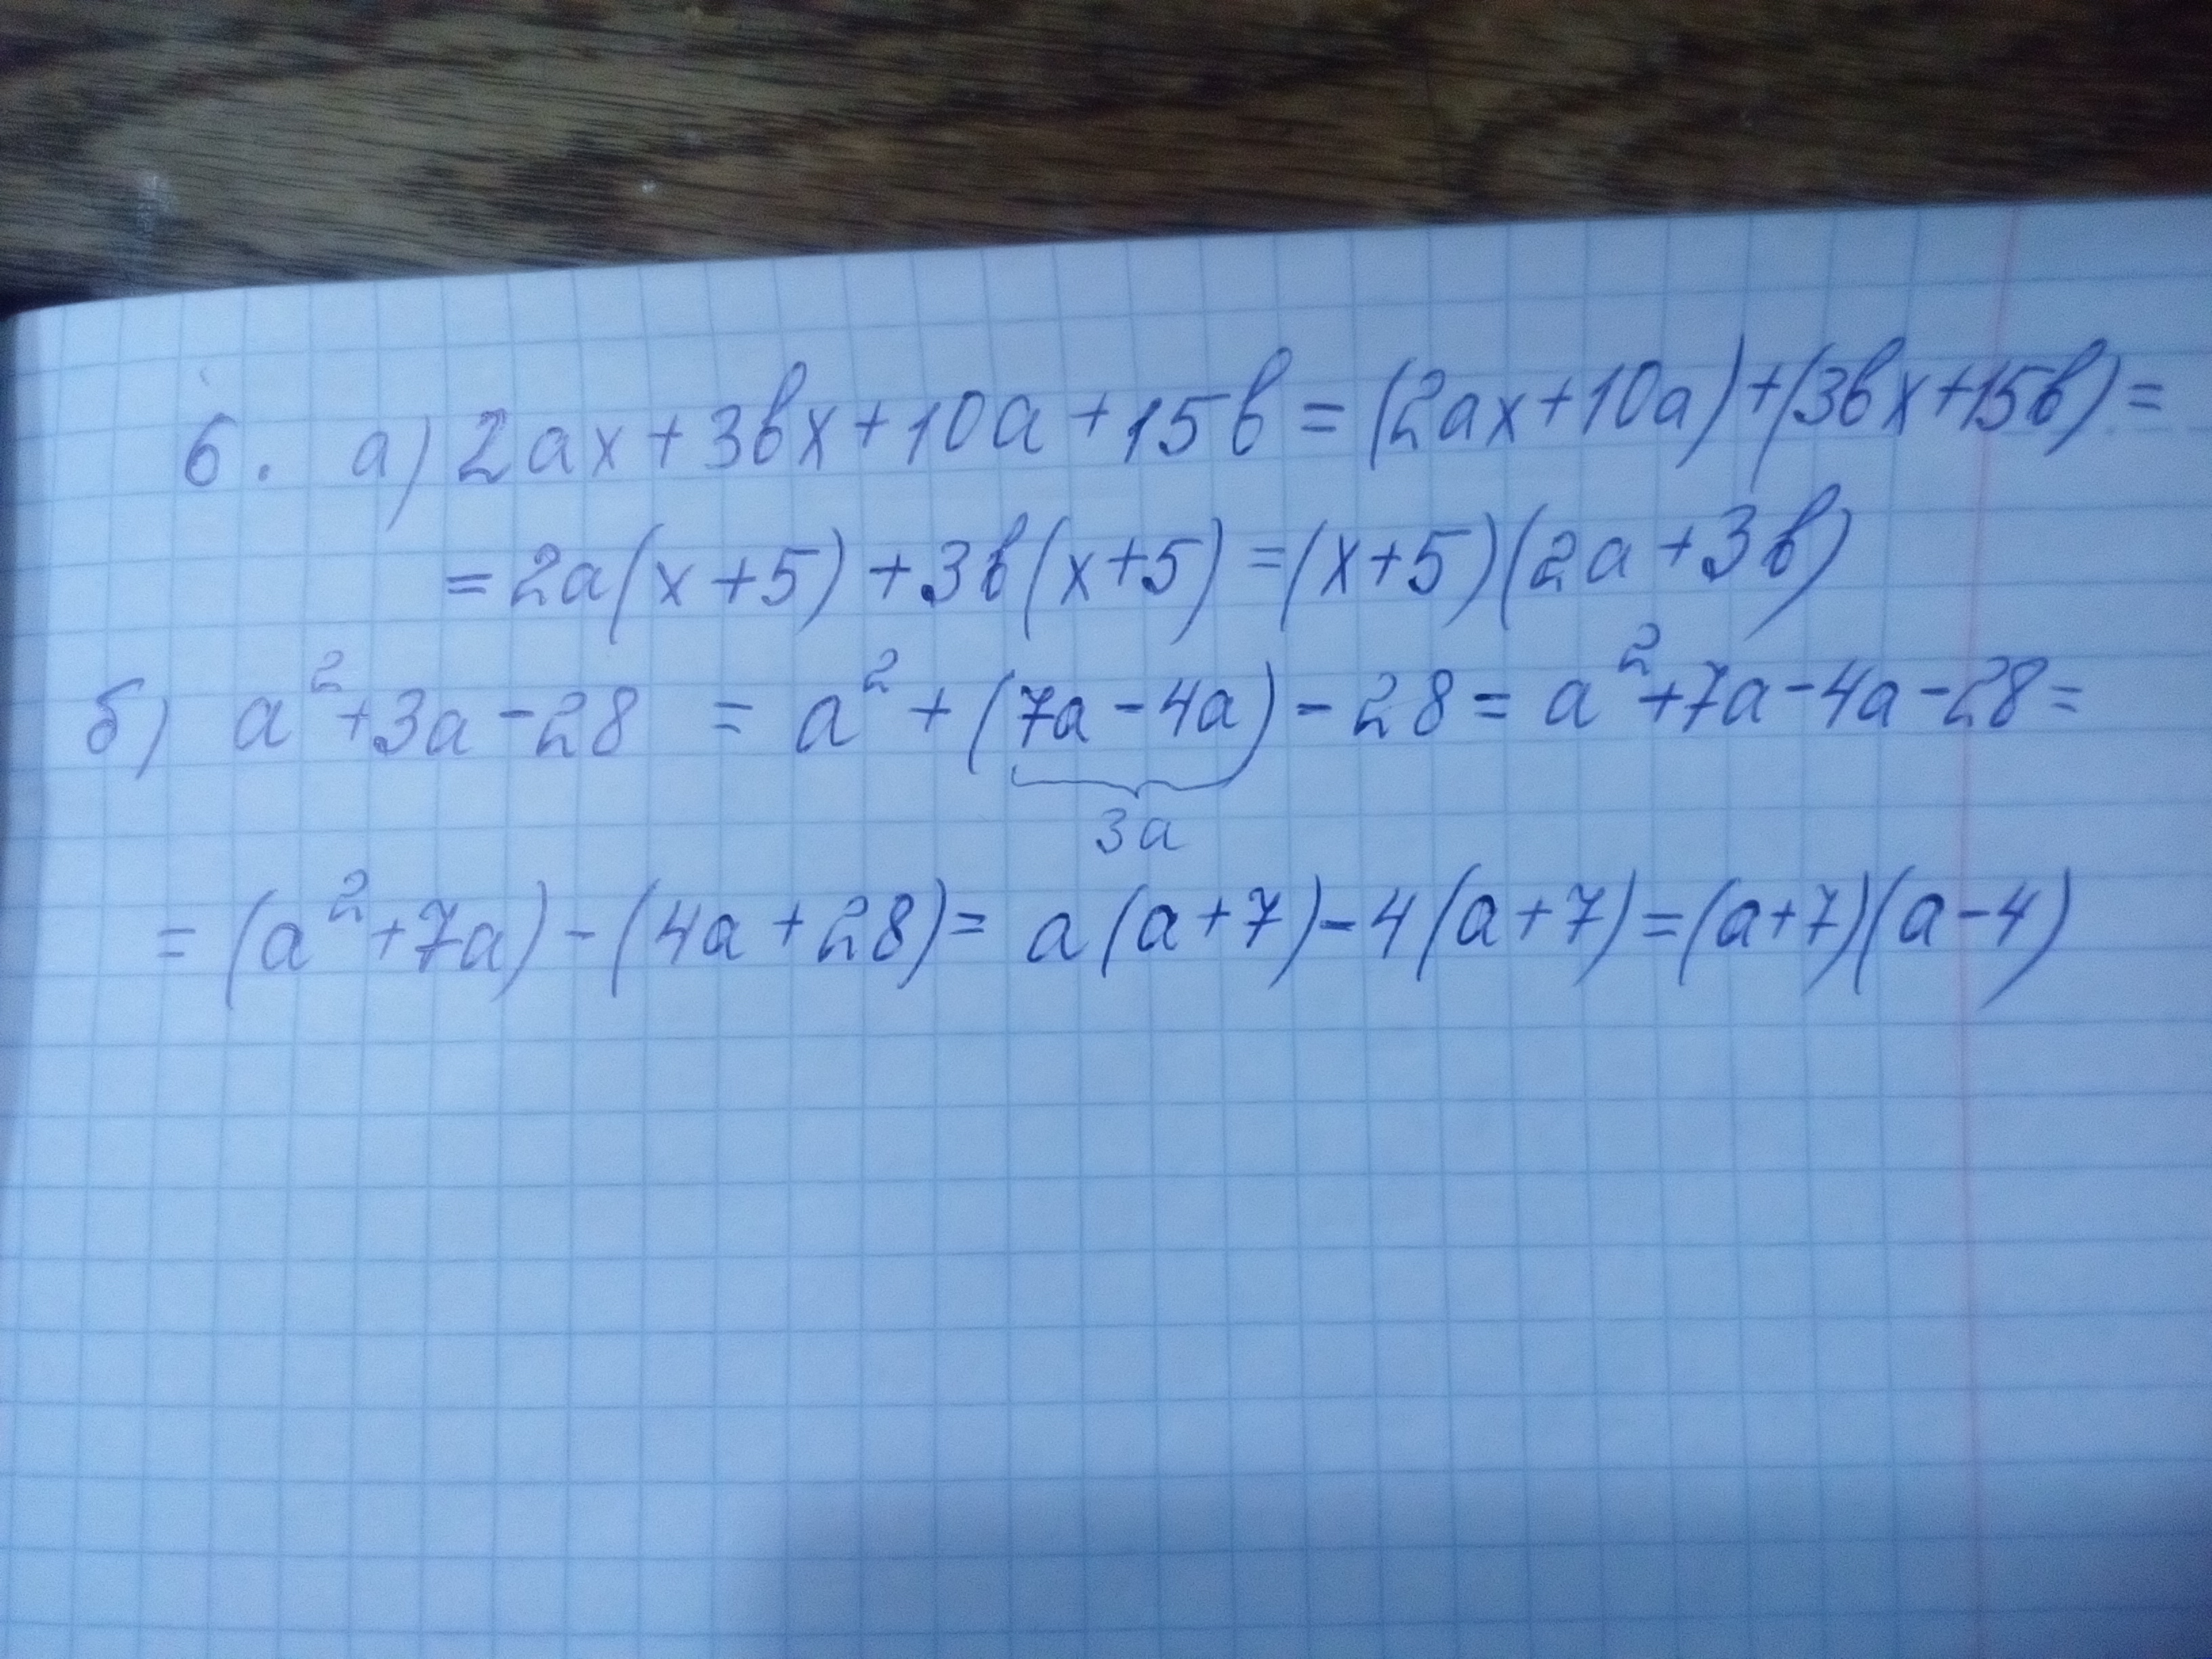 6. а) 2ax+3bx+10a+15b=(2ax+10a)+(3bx+15b)=
=2a(x+5)+3b(x+5)=(x+5)(2a+3b)
б) a²+3a-28 = a²+(7a-4a)-28=a²+7a-4a-28=
3a
=(a²+7a)-(4a+28)= a(a+7)-4(a+7)=(a+7)(a-4)